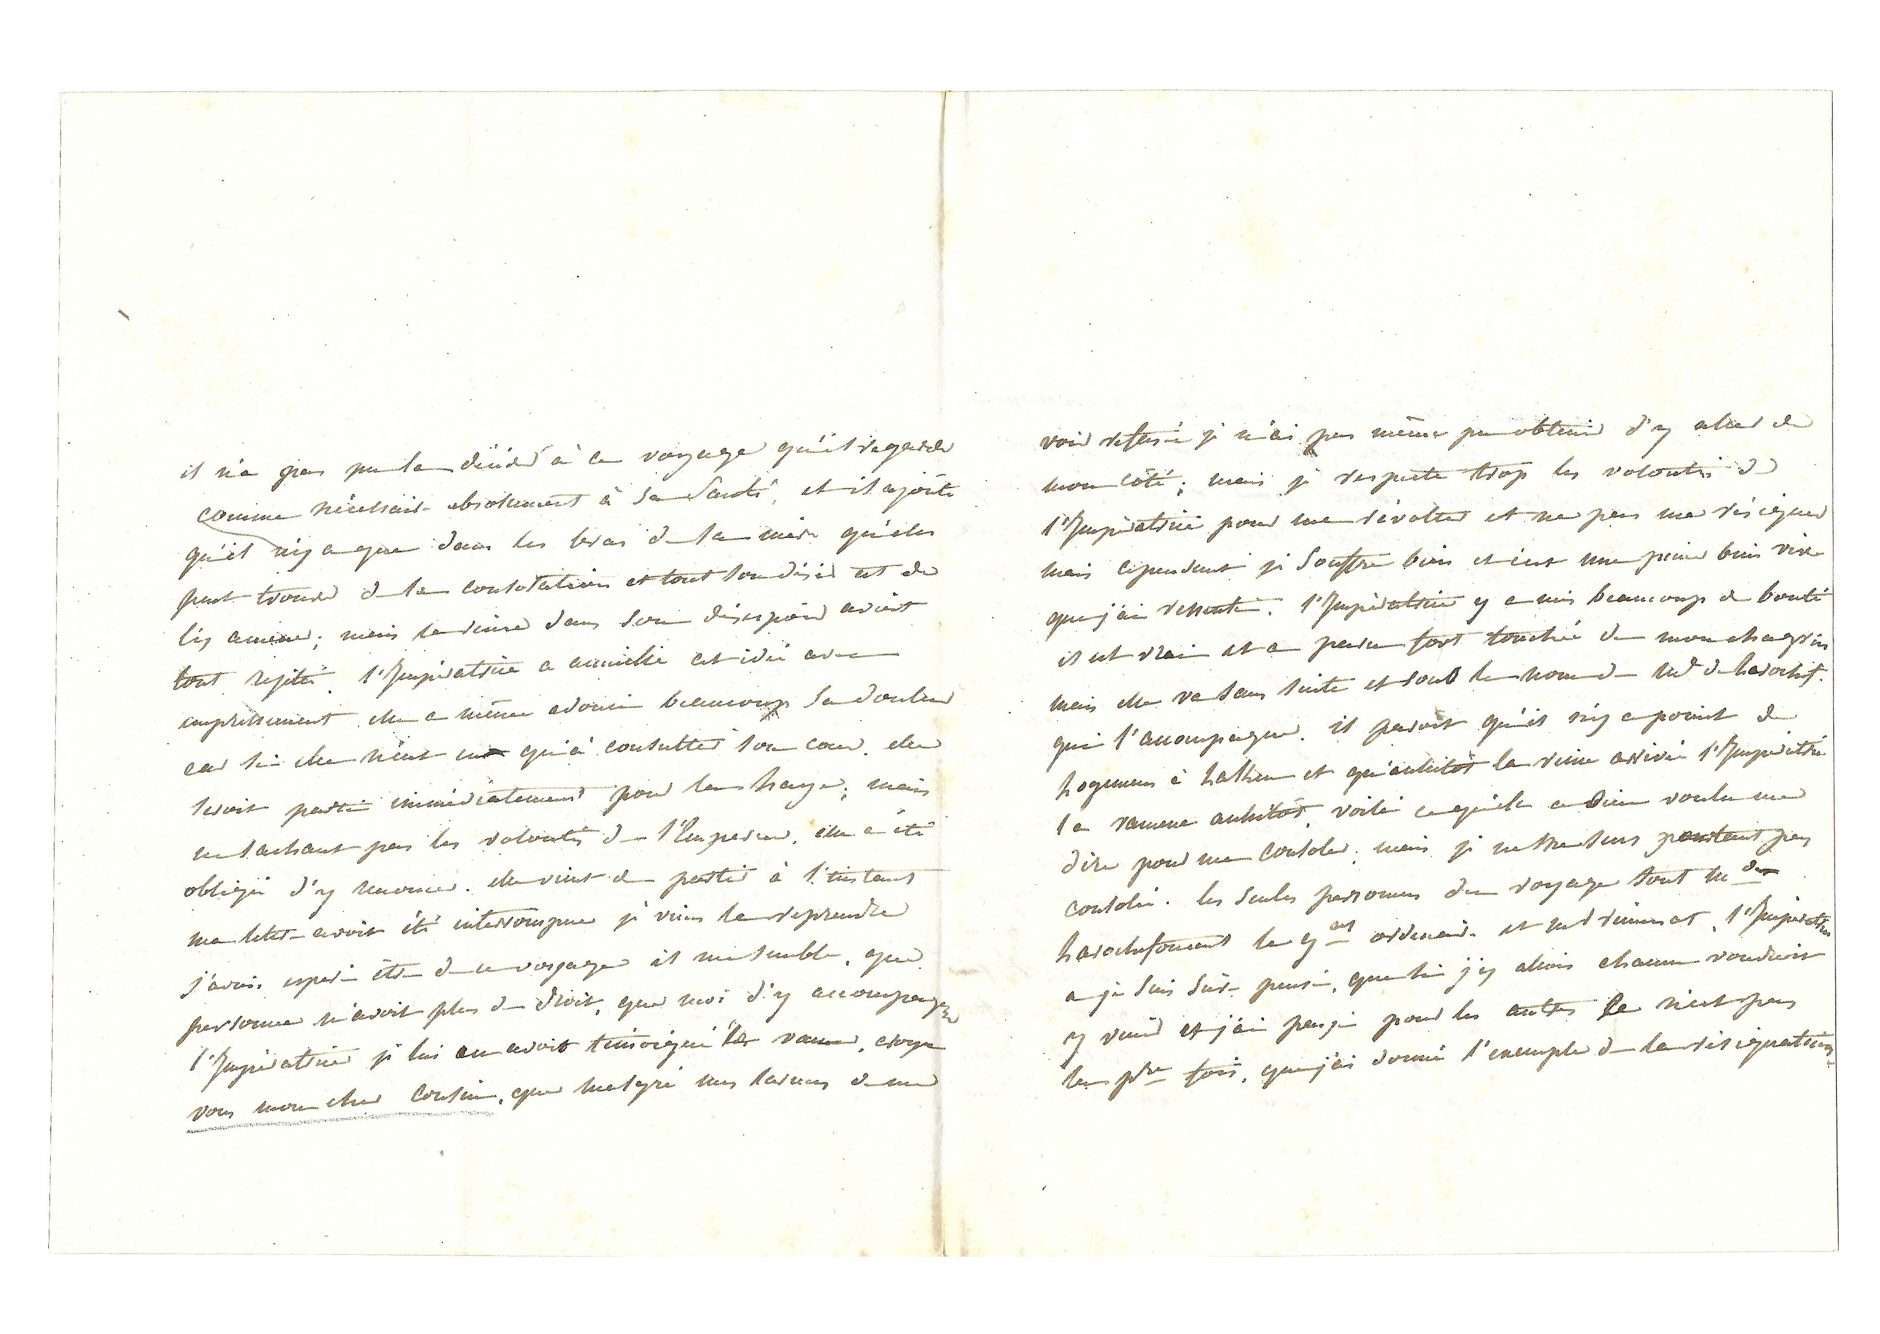 il n'a pas pu la décider à ce voyage qu'il regarde
comme nécessaire absolument à sa santé, et il ajoute
qu'il n'y a que dans les bras de sa mère qu'elle
peut trouver de la consolation et tout son désir est de
l'y amener; mais la reine dans son désespoir avoit
tout rejeté. l'Impératrice a accueilli cet idée avec
empressement elle a même adouci beaucoup sa douleur
car si elle n'eut eu qu'à consulter son cœur. elle
seroit partie immédiatement pour la haye; mais
ne sachant pas les volontés de l'Empereur. elle a été
obligée d'y renoncer. elle vient de partir à l'instant
ma lettre avoit été interrompue je viens la reprendre
j'avois esperé être de ce voyage il me semble, que
personne n'avoit plus de droit, que moi d'y accompagner
l'Impératrice je lui en avois témoigné le vœu, croyez
vous mon cher cousin, que malgré mes larmes de me
voir refusée je n'ai pas même pu obtenir d'y aller de
mon côté; mais je respecte trop les volontés de
l'Impératrice pour me révolter et ne pas me résigner
mais cependant je souffre bien et c'est une peine bien vive
que j'ai ressentie. l'Impératrice y a mis beaucoup de bonté
il est vrai et a paru fort touchée de mon chagrin
mais elle va sans suite et sous le nom de Md de Larochef.
qui l'accompagne. il paroit qu'il n'y a point de
logemens à Laken et qu'aussitôt la reine arrivée l'Impératrice
la ramene aussitôt, voilà ce qu'elle a bien voulu me
dire pour me consoler; mais je ne me sens pourtant pas
consolée. les seules personnes du voyage sont M de
Larochefoucaut le gal ordener et md rémusat, l'Impératrice
a je suis sûre pensé, que si j'y allois chacun voudroit
y venir et j'ai payé pour les autres ce n'est pas
la pre fois, que j'ai donné l'exemple de la résignation